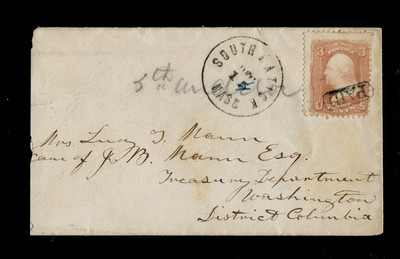 SOUTH NATICK
14
MASS
3 3
U S
PAID
5th
Mrs. Lucy T. Mann
Care of J. B. Mann Esq.
Treasury Department
Washington
District Columbia